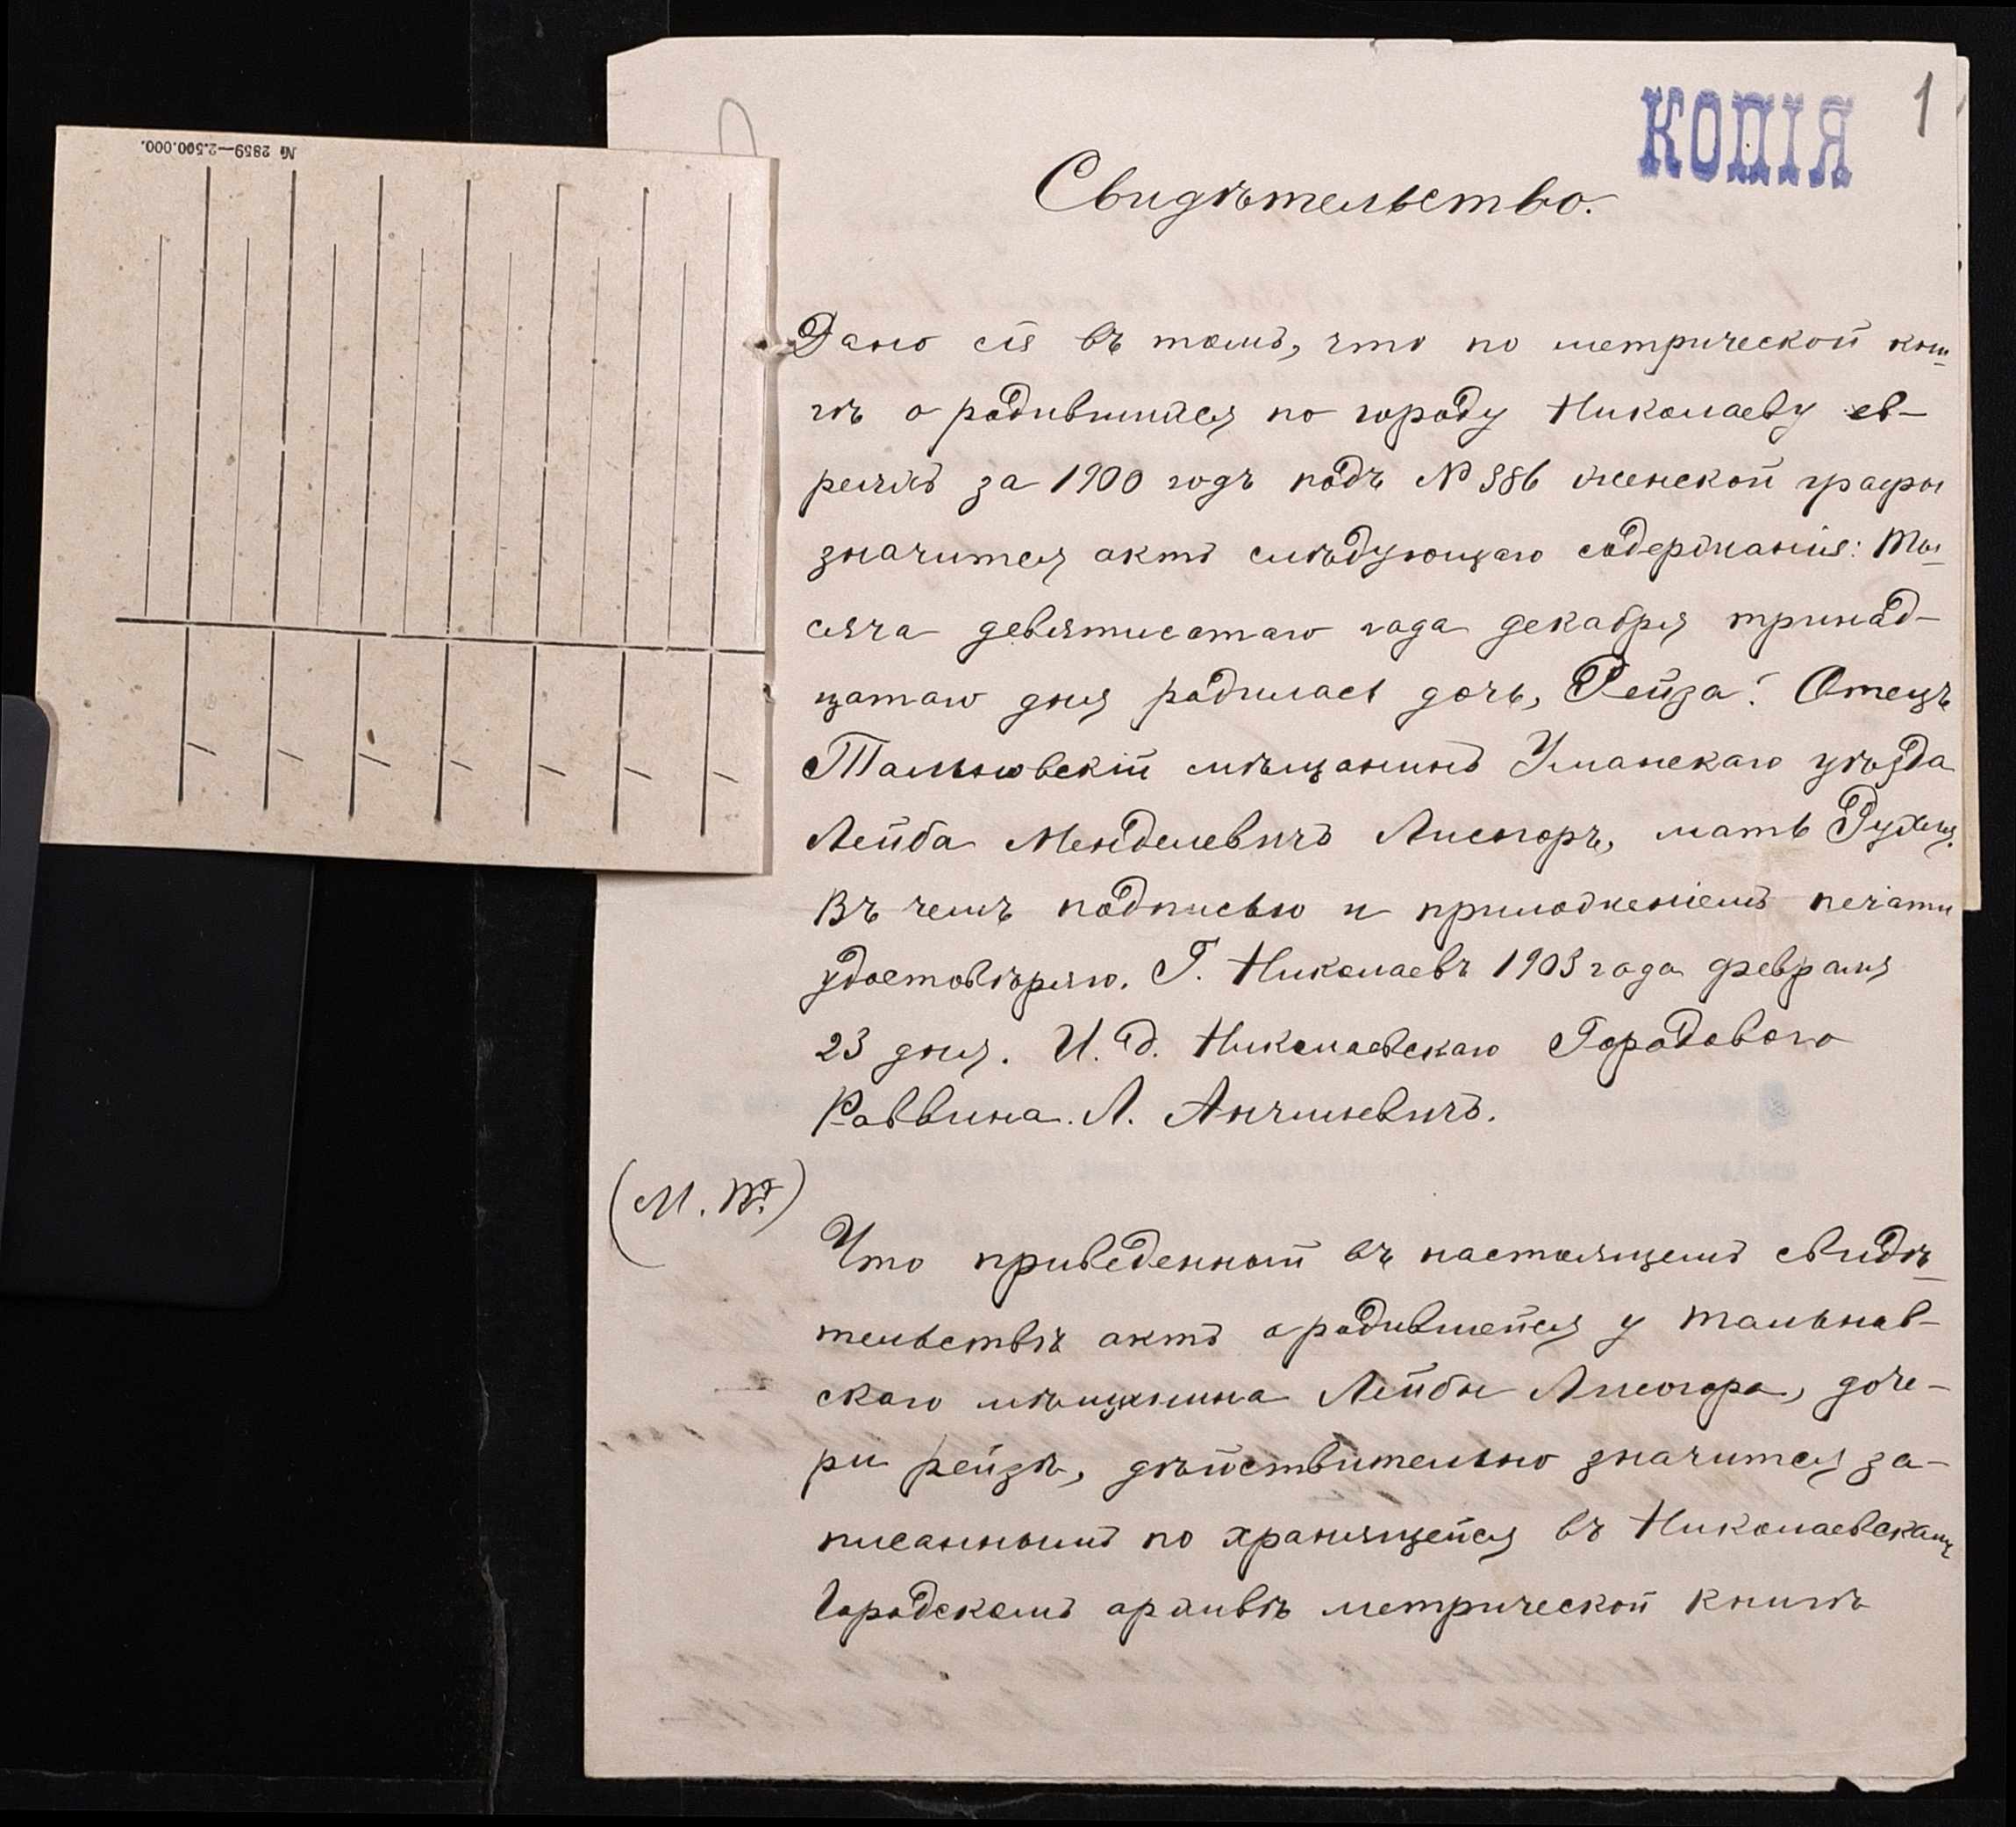 № 2859—2.500.000.
КОПІЯ
1
Свидѣтельство.
Дано сіе въ томъ, что по метрической кни-
гѣ о родившихся по городу Николаеву ев-
реяхъ за 1900 годъ подъ № 386 женской графы
значится актъ слѣдующаго содержанія: Ты-
сяча девятисотаго года декабря тринад-
цатаго дня родилась дочь, Рейза. Отецъ
Тальновскій мѣщанинъ Уманскаго уѣзда
Лейба Менделевичъ Лисогоръ, мать Рухля.
Въ чемъ подписью и приложеніемъ печати
удостовѣряю. Г. Николаевъ 1903 года февраля
23 дня. И. д. Николаевскаго Городового
Раввина. Л.
(М. П.)
Что приведенный въ настоящемъ свидѣ-
тельствѣ актъ о родившейся у Тальнов-
скаго мѣщанина Лейбы Лисогора, доче-
ри Рейзѣ, дѣйствительно значится за-
писаннымъ по хранящейся въ Николаевскомъ
Городскомъ архивѣ метрической книгѣ